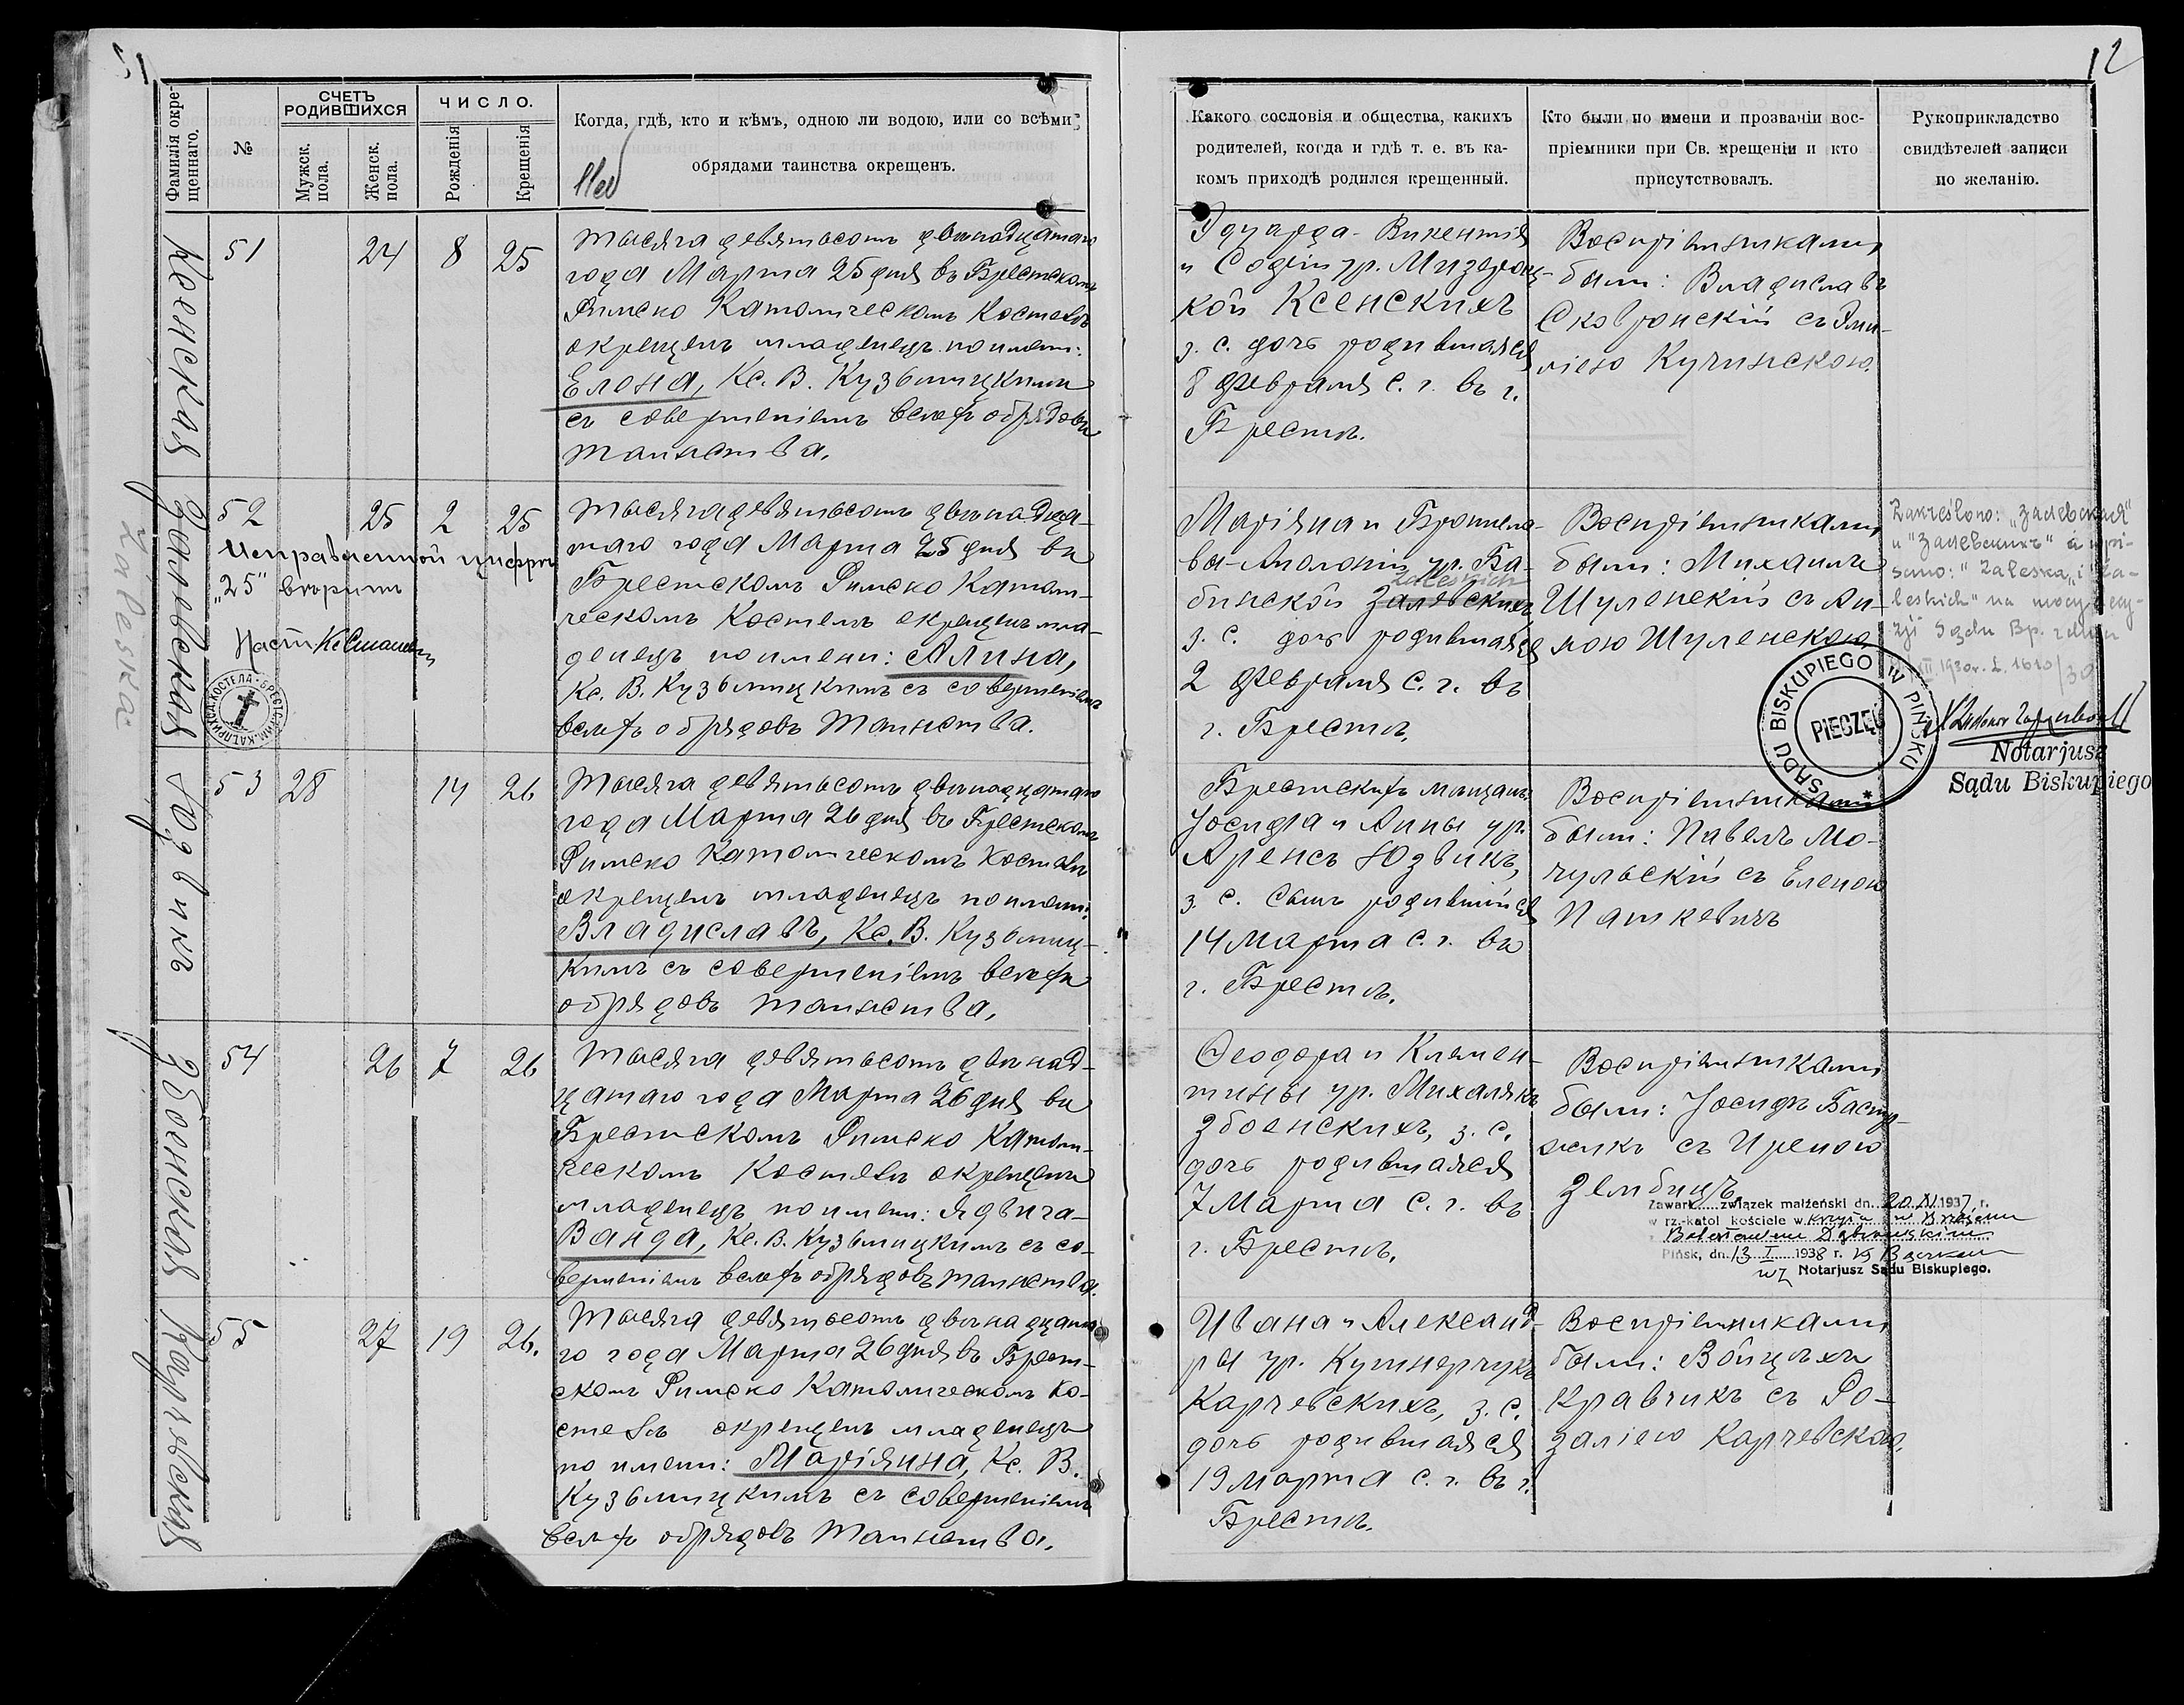 12
Фамилія окре-
щеннаго.
№
СЧЕТЪ
РОДИВШИХСЯ
Мужск.
пола.
Женск.
пола.
ЧИСЛО.
Рожденія
Крещенія
Когда, гдѣ, кто и кѣмъ, одною ли водою, или со всѣми
обрядами таинства окрещенъ.
Какого сословія и общества, какихъ
родителей, когда и гдѣ т. е. въ ка-
комъ приходѣ родился крещенный.
Кто были по имени и прозваніи вос-
пріемники при Св. крещеніи и кто
присутствовалъ.
Рукоприкладство
свидѣтелей записи
по желанію.
Ксенская
51 24 8 25
Тысяча девятьсотъ двѣнадцатаго
года Марта 25 дня въ Брестскомъ
Римско Католическомъ Костелѣ
окрещенъ младенецъ по имени:
Елена, Кс. В. Кузьмицкимъ
съ совершеніемъ всѣхъ обрядовъ
таинства.
Эдуарда-Викентія
и Софіи ур.
кой Ксенскихъ
з. с. дочь родившаяся
8 Февраля с. г. въ г.
Брестѣ.
Воспріемниками
были: Владиславъ
Сковронскій съ Эми-
ліею Кучинскою.
Залевская
Zaleska
52 25 2 25
Исправленной цифрѣ
„25" вѣрить
Тысяча девятьсотъ двѣнадца-
таго года Марта 25 дня въ
Брестскомъ Римско Катол-
ческомъ Костелѣ окрещенъ мла-
денецъ по имени: Алина,
Кс. В. Кузьмицкимъ съ совершеніемъ
всѣхъ обрядовъ таинства.
Маріяна и Бронисла-
вы-Аполоніи ур. Ба-
Zaleskich
бинской Залевскихъ
з. с. дочь родившаяся
2 Февраля с. г. въ
г. Брестѣ.
Воспріемниками
были: Михаилъ
Шуленскій съ Ан-
ною Шуленскою.
Zakreślono: „Залевская"
и "Залевскихъ" a wpi-
sano: "Zaleska„ i "Za-
leskich" na mocy decy-
zji Sądu Bp. z dnia
1930r. L. 1610/30
SĄDU BISKUPIEGO W PIŃSKU
PIECZĘĆ
Notarjusz
Sądu Biskupiego
Юзвикъ
53 28 14 26
Тысяча девятьсотъ двѣнадцатаго
года Марта 26 дня въ Брестскомъ
Римско Католическомъ Костелѣ
окрещенъ младенецъ по имени:
Владиславъ, Кс. В. Кузьмиц-
кимъ съ совершеніемъ всѣхъ
обрядовъ таинства.
Брестскихъ мѣщанъ
Іосифа и Анны ур.
Аренсъ Юзвикъ,
з. с. сынъ родившійся
14 Марта с. г. въ
г. Брестѣ.
Воспріемниками
были: Павелъ Мо-
чульскій съ Еленою
Паткевичъ
Збоенская
54 26 7 26
Тысяча девятьсотъ двѣнад-
цатаго года Марта 26 дня въ
Брестскомъ Римско Катол-
ческомъ Костелѣ окрещенъ
младенецъ по имени: Ядвига-
Ванда, Кс. В. Кузьмицкимъ съ со-
вершеніемъ всѣхъ обрядовъ таинства.
Ѳеодора и Клемен-
тины ур. Михалякъ
Збоенскихъ, з. с.
дочь родившаяся
7 Марта с. г. въ
г. Брестѣ.
Воспріемниками
были: Іосифъ
съ Иреною
Zawarł związek małżeński dn. 20 XI 1937 r.
w rz.-katol kościele w
Bolesławem Dąbrowskim
Pińsk, dn. 13 I 1938 r.
wz Notarjusz Sądu Biskupiego.
Карчевская
55 27 19 26.
Тысяча девятьсотъ двѣнадцата-
го года Марта 26 дня въ Брест-
скомъ Римско Католическомъ Ко-
стелѣ окрещенъ младенецъ
по имени: Маріянна, Кс. В.
Кузьмицкимъ съ совершеніемъ
всѣхъ обрядовъ таинства.
Ивана и Александ-
ры ур. Кушнерчукъ
Карчевскихъ, з. с.
дочь родившаяся
19 Марта с. г. въ г.
Брестѣ.
Воспріемниками
были: Войцѣхъ
Кравчикъ съ Ро-
заліею Карчевскою.